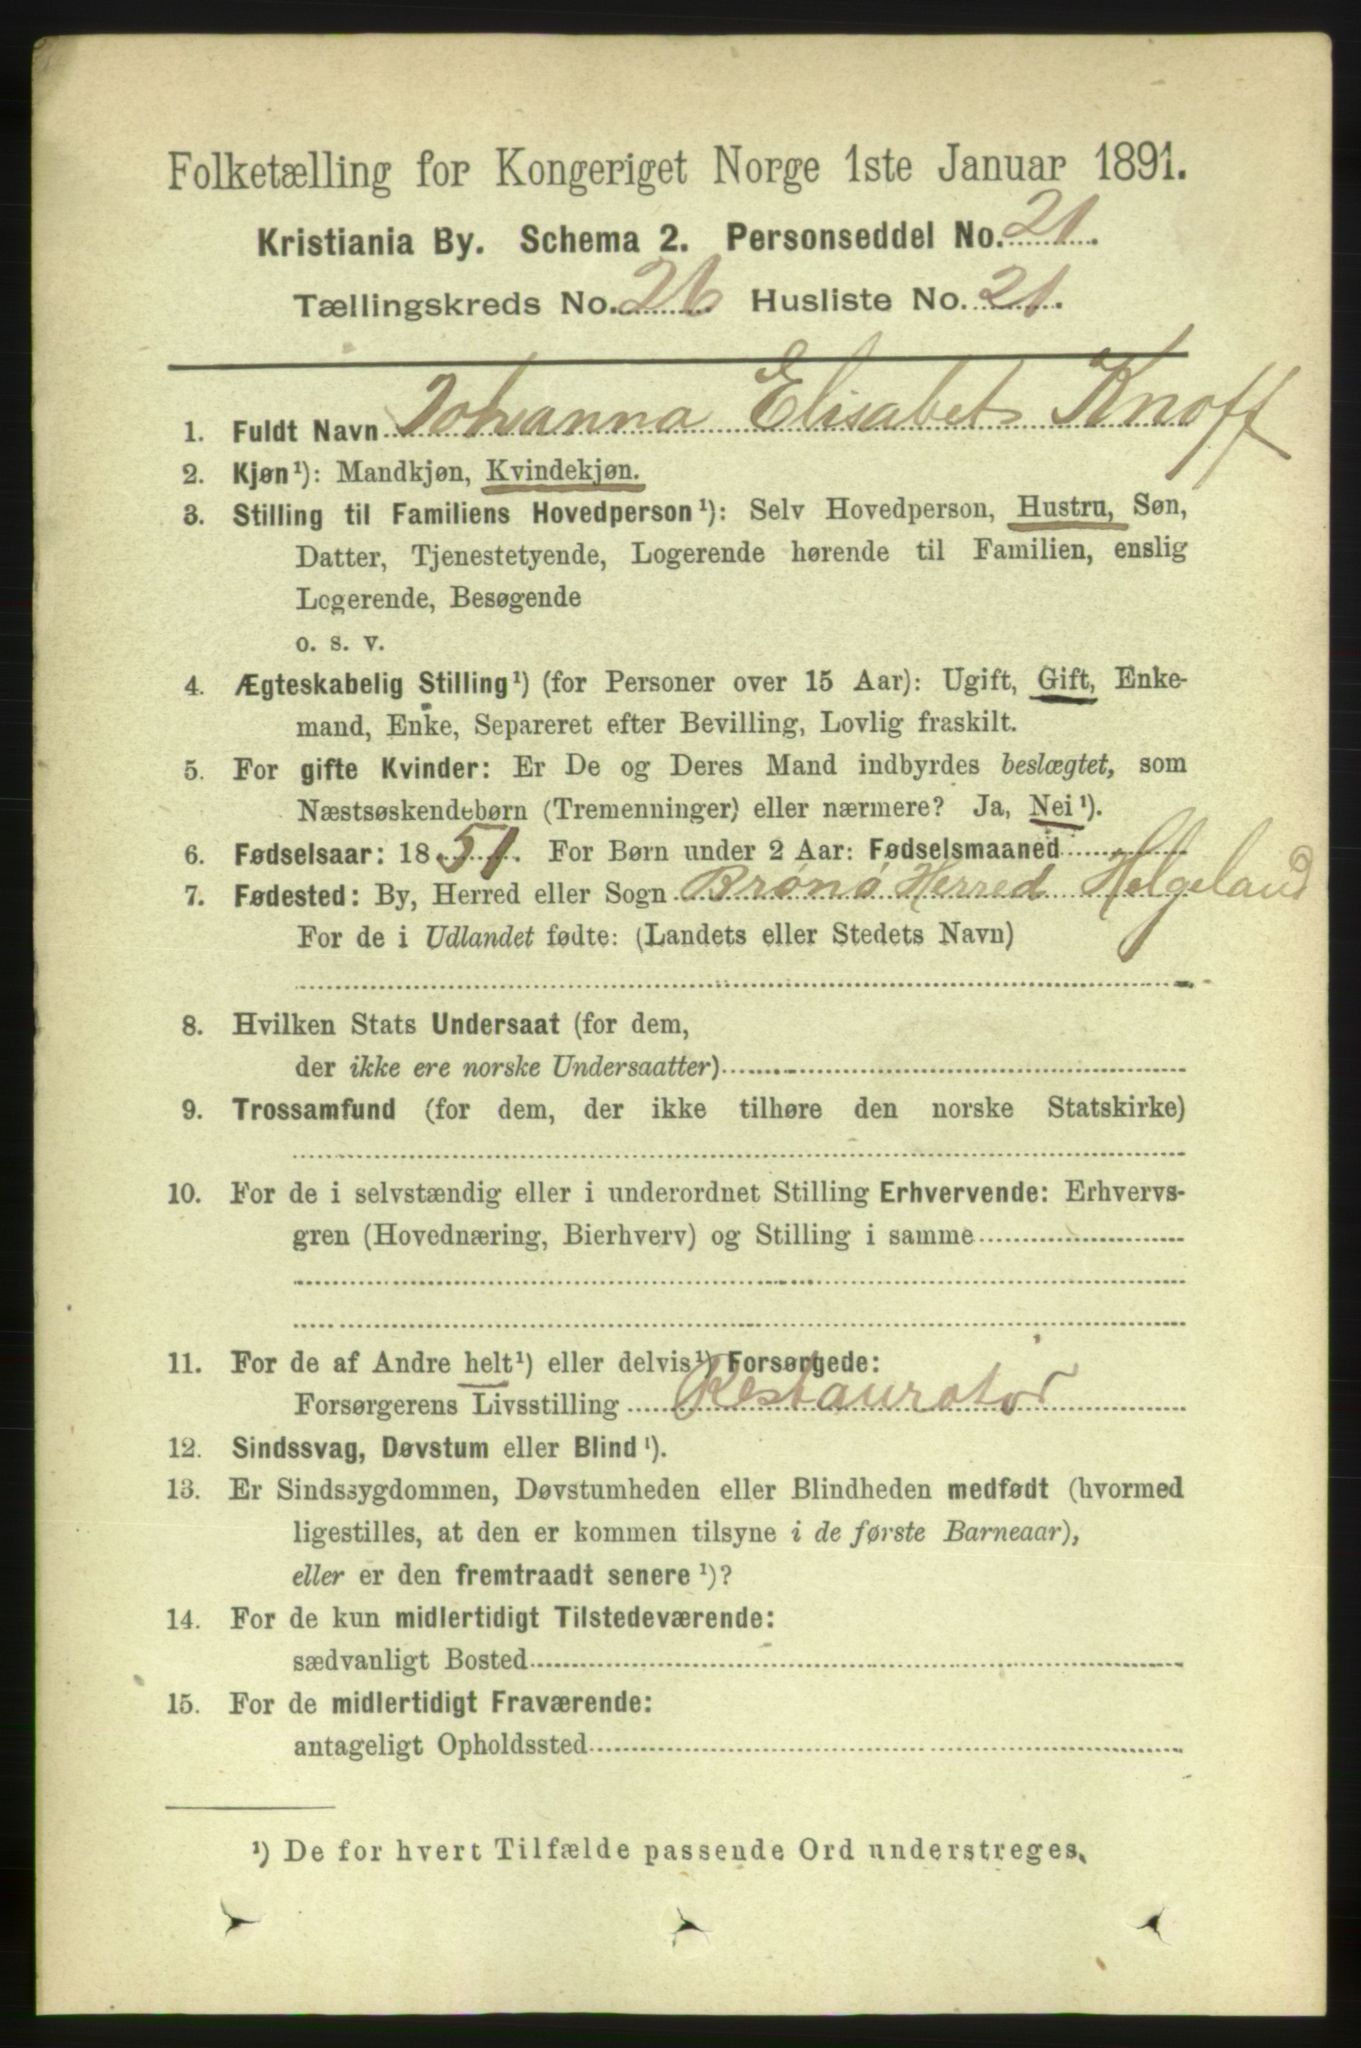 Folketælling for Kongeriget Norge 1ste Januar 1891.
Kristiania By. Schema 2. Personseddel No. 21.
Tællingskreds No. 26 Husliste No. 21.
1. Fuldt Navn Johanna Elisabet Knoff
2. Kjøn¹): Mandkjøn, Kvindekjøn.
3. Stilling til Familiens Hovedperson¹): Selv Hovedperson, Hustru, Søn,
Datter, Tjenestetyende, Logerende hørende til Familien, enslig
Logerende, Besøgende
o. s. v.
4. Ægteskabelig Stilling¹) (for Personer over 15 Aar): Ugift, Gift, Enke-
mand, Enke, Separeret efter Bevilling, Lovlig fraskilt.
5. For gifte Kvinder: Er De og Deres Mand indbyrdes beslægtet, som
Næstsøskendebørn (Tremenninger) eller nærmere? Ja, Nei¹).
6. Fødselsaar: 1851. For Børn under 2 Aar: Fødselsmaaned
7. Fødested: By, Herred eller Sogn Brønø Herred Helgeland
For de i Udlandet fødte: (Landets eller Stedets Navn)
8. Hvilken Stats Undersaat (for dem,
der ikke ere norske Undersaatter)
9. Trossamfund (for dem, der ikke tilhøre den norske Statskirke)
10. For de i selvstændig eller i underordnet Stilling Erhvervende: Erhvervs-
gren (Hovednæring, Bierhverv) og Stilling i samme
11. For de af Andre helt¹) eller delvis¹) Forsørgede:
Forsørgerens Livsstilling Restauratør
12. Sindssvag, Døvstum eller Blind¹).
13. Er Sindssygdommen, Døvstumheden eller Blindheden medfødt (hvormed
ligestilles, at den er kommen tilsyne i de første Barneaar),
eller er den fremtraadt senere¹)?
14. For de kun midlertidigt Tilstedeværende:
sædvanligt Bosted
15. For de midlertidigt Fraværende:
antageligt Opholdssted
¹) De for hvert Tilfælde passende Ord understreges.